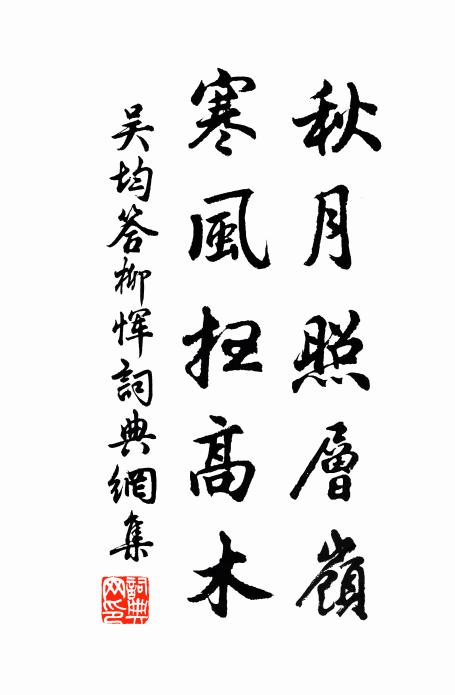 秋月照層嶺
寒風扫高木
吴均答柳惲詞典網集
詞典网印